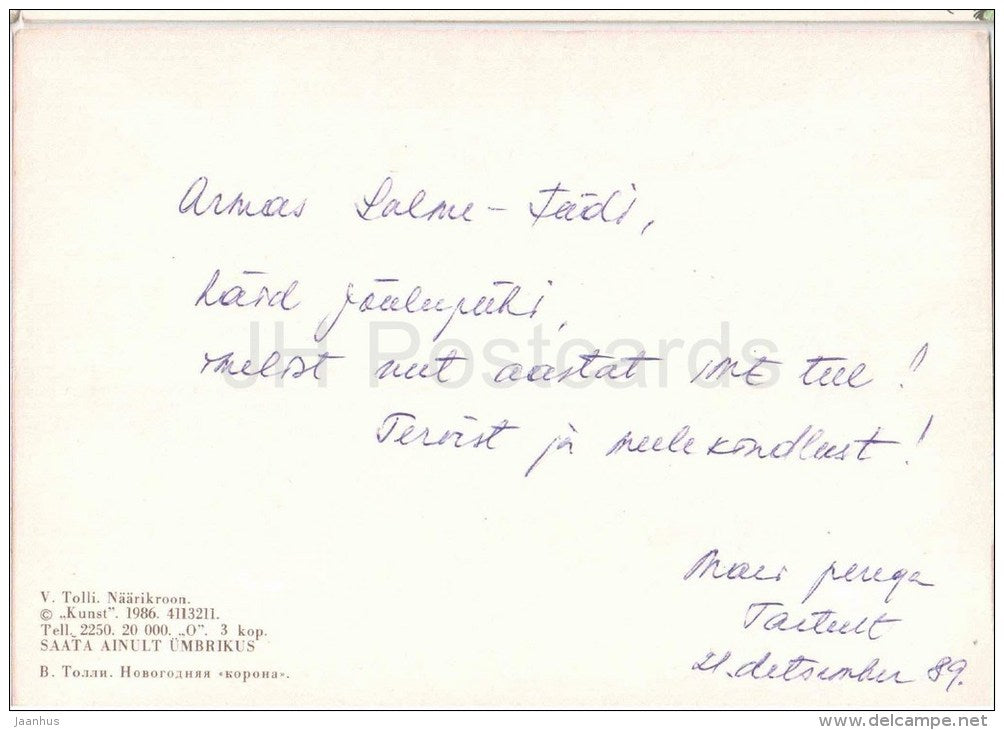 Armas Salme-tädi,
häid jõulupühi,
imelist uut aastat
teel!
Tervist ja meelekindlust!
perega
Tartult
21. detsember 89.
V. Tolli. Näärikroon.
© „Kunst". 1986. 4113211.
Tell. 2250. 20 000. „O". 3 kop.
SAATA AINULT ÜMBRIKUS
В. Толли. Новогодняя «корона».
JH Postcards
jaanhus
www.delcampe.net